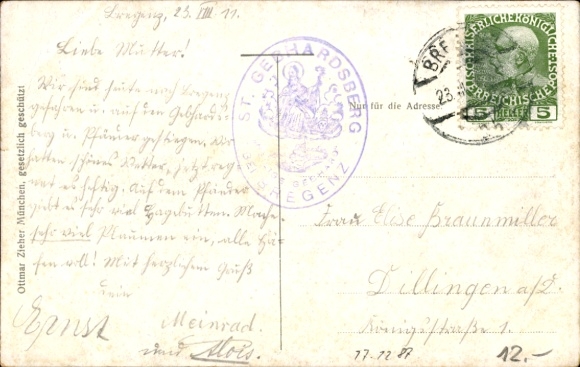 Bregenz, 23. VIII. 11.
Liebe Mutter!
Wir sind heute nach Bregenz
gefahren u. auf den Gebhards-
berg u. Pfänder gestiegen. Wir
hatten schönes Wetter, jetzt reg-
net es heftig. Auf dem Pfänder
gibt es sehr viel Hagebutten. Mache
sehr viel Pflaumen ein, alle Hä-
fen voll! Mit herzlichem Gruß
Dein
Ernst
Meinrad.
und Alois.
Ottmar Zieher München, gesetzlich geschützt
ST. GEBHARDSBERG
BEI BREGENZ
Nur für die Adresse
BRE
23
KAISERLICHEKÖNIGLICHE
ÖSTERREICHISCHE POST
5 HELLER 5
Frau Elise Braunmiller
Dillingen a/D.
Königsstraße 1.
17-12 87
12.-